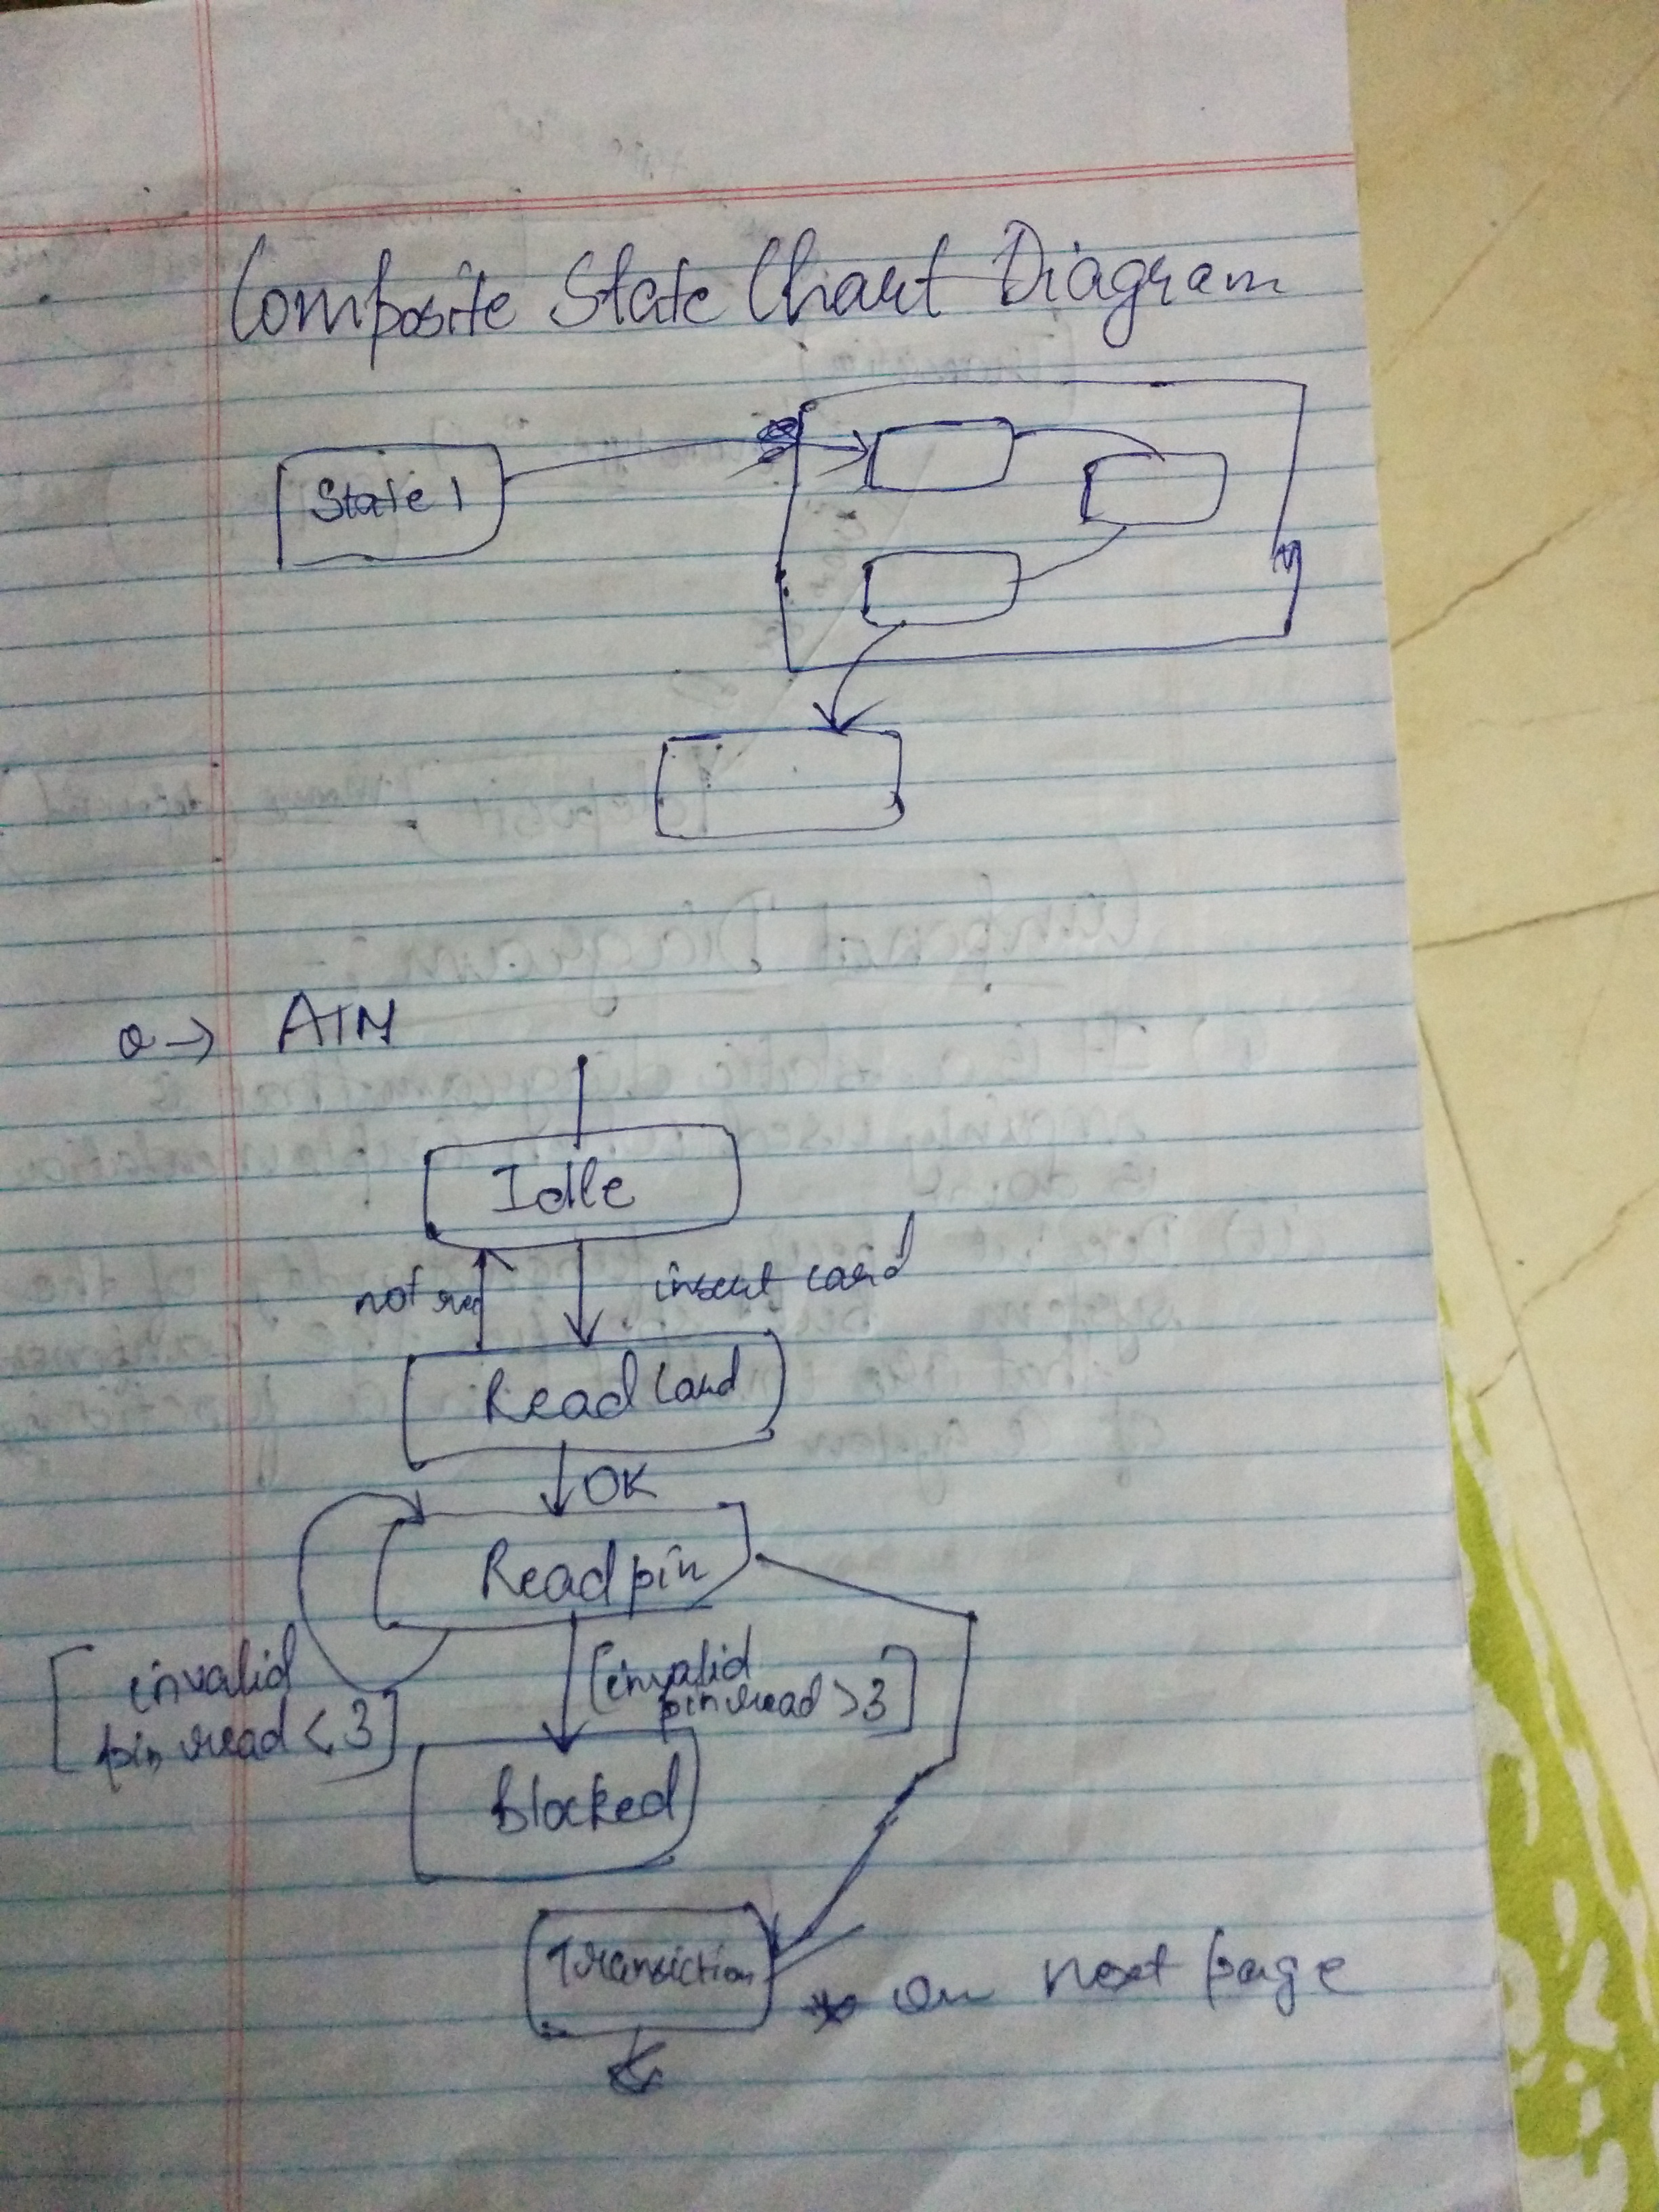 Composite State Chart Diagram
State 1
Q → ATM
Idle
not red
insert card
Read Card
OK
Read pin
[invalid
pin read < 3]
[invalid
pin read > 3]
Blocked
Transiction
on next page